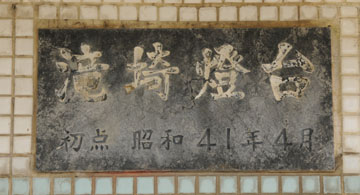 滝埼燈台
初点 昭和41年4月